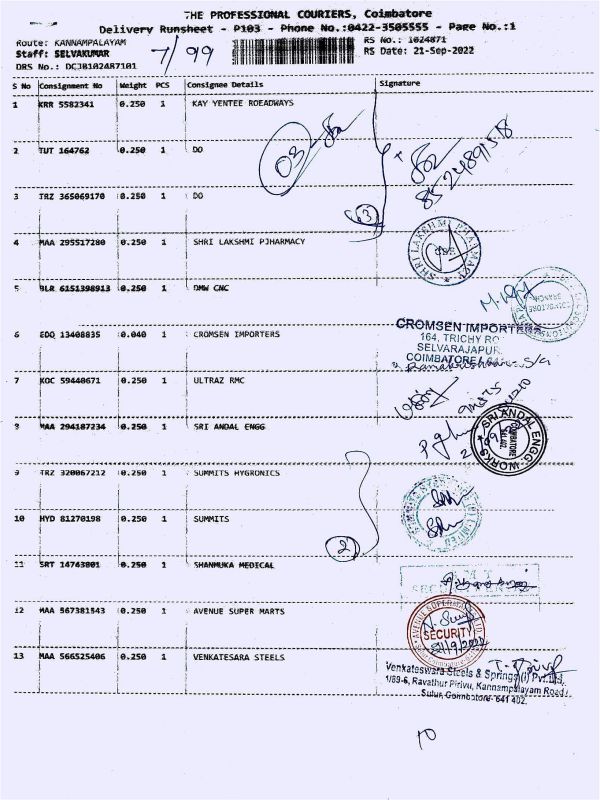 THE PROFESSIONAL COURIERS, Coimbatore
Delivery Runsheet - P103 - Phone No.:0422-3505555 - Page No.:1
Route: KANNAMPALAYAM
7/99
RS No.: 1024871
Staff: SELVAKUMAR
RS Date: 21-Sep-2022
DRS No.: DCJB102487101
S No Consignment No Weight PCS Consignee Details Signature
1 KRR 5582341 0.250 1 KAY YENTEE ROEADWAYS
03
2 TUT 164762 0.250 1 DO
8524891518
3 TRZ 365069170 0.250 1 DO
3
4 MAA 295517280 0.250 1 SHRI LAKSHMI PJHARMACY
SHRI LAKSHMI PHARMACY
5 BLR 6151398913 0.250 1 DMW CNC
6 EDO 13408835 0.040 1 CROMSEN IMPORTERS
CROMSEN IMPORTERS
164, TRICHY RO
SELVARAJAPUR
COIMBATORE
7 KOC 59440671 0.250 1 ULTRAZ RMC
8 MAA 294187234 0.250 1 SRI ANDAL ENGG
SRI ANDAL ENGG. WORKS
COIMBATORE
9 TRZ 320067212 0.250 1 SUMMITS HYGRONICS
10 HYD 81270198 0.250 1 SUMMITS
2
11 SRT 14743801 0.250 1 SHANMUKA MEDICAL
12 MAA 567381543 0.250 1 AVENUE SUPER MARTS
SECURITY
21/9/2022
13 MAA 566525406 0.250 1 VENKATESARA STEELS
Venkateswara Steels & Springs (I) Pvt. Ltd.,
1/89-6, Ravathur Pirivu, Kannampalayam Road,
Sulur, Coimbatore- 641 402.
10